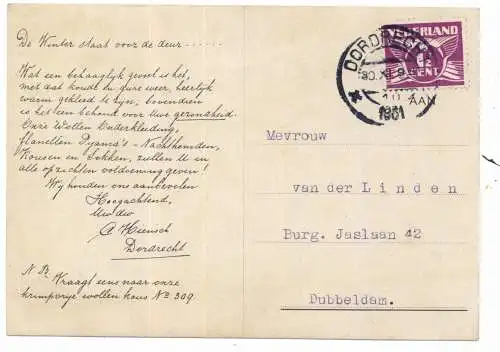 De Winter staat voor de deur
Wat een behaaglijk gevoel is het,
met dat koude en gure weer, heerlijk
warm gekleed te zijn, bovendien
is het een behoud voor Uwe gezondheid.
Onze Wollen Onderkleeding,
flanellen Pyama's - Nachthemden,
Kousen en Sokken, zullen U in
alle opzichten voldoening geven!
Wij houden ons aanbevolen
Hoogachtend,
Uw dw
Dordrecht
N.B. Vraagt eens naar onze
krimpvrije wollen kous No 309.
NEDERLAND
1½
CENT
DORDRECHT
30.XI
1931
AAN
Mevrouw
van der Linden
Burg. Jaslaan 42
Dubbeldam.